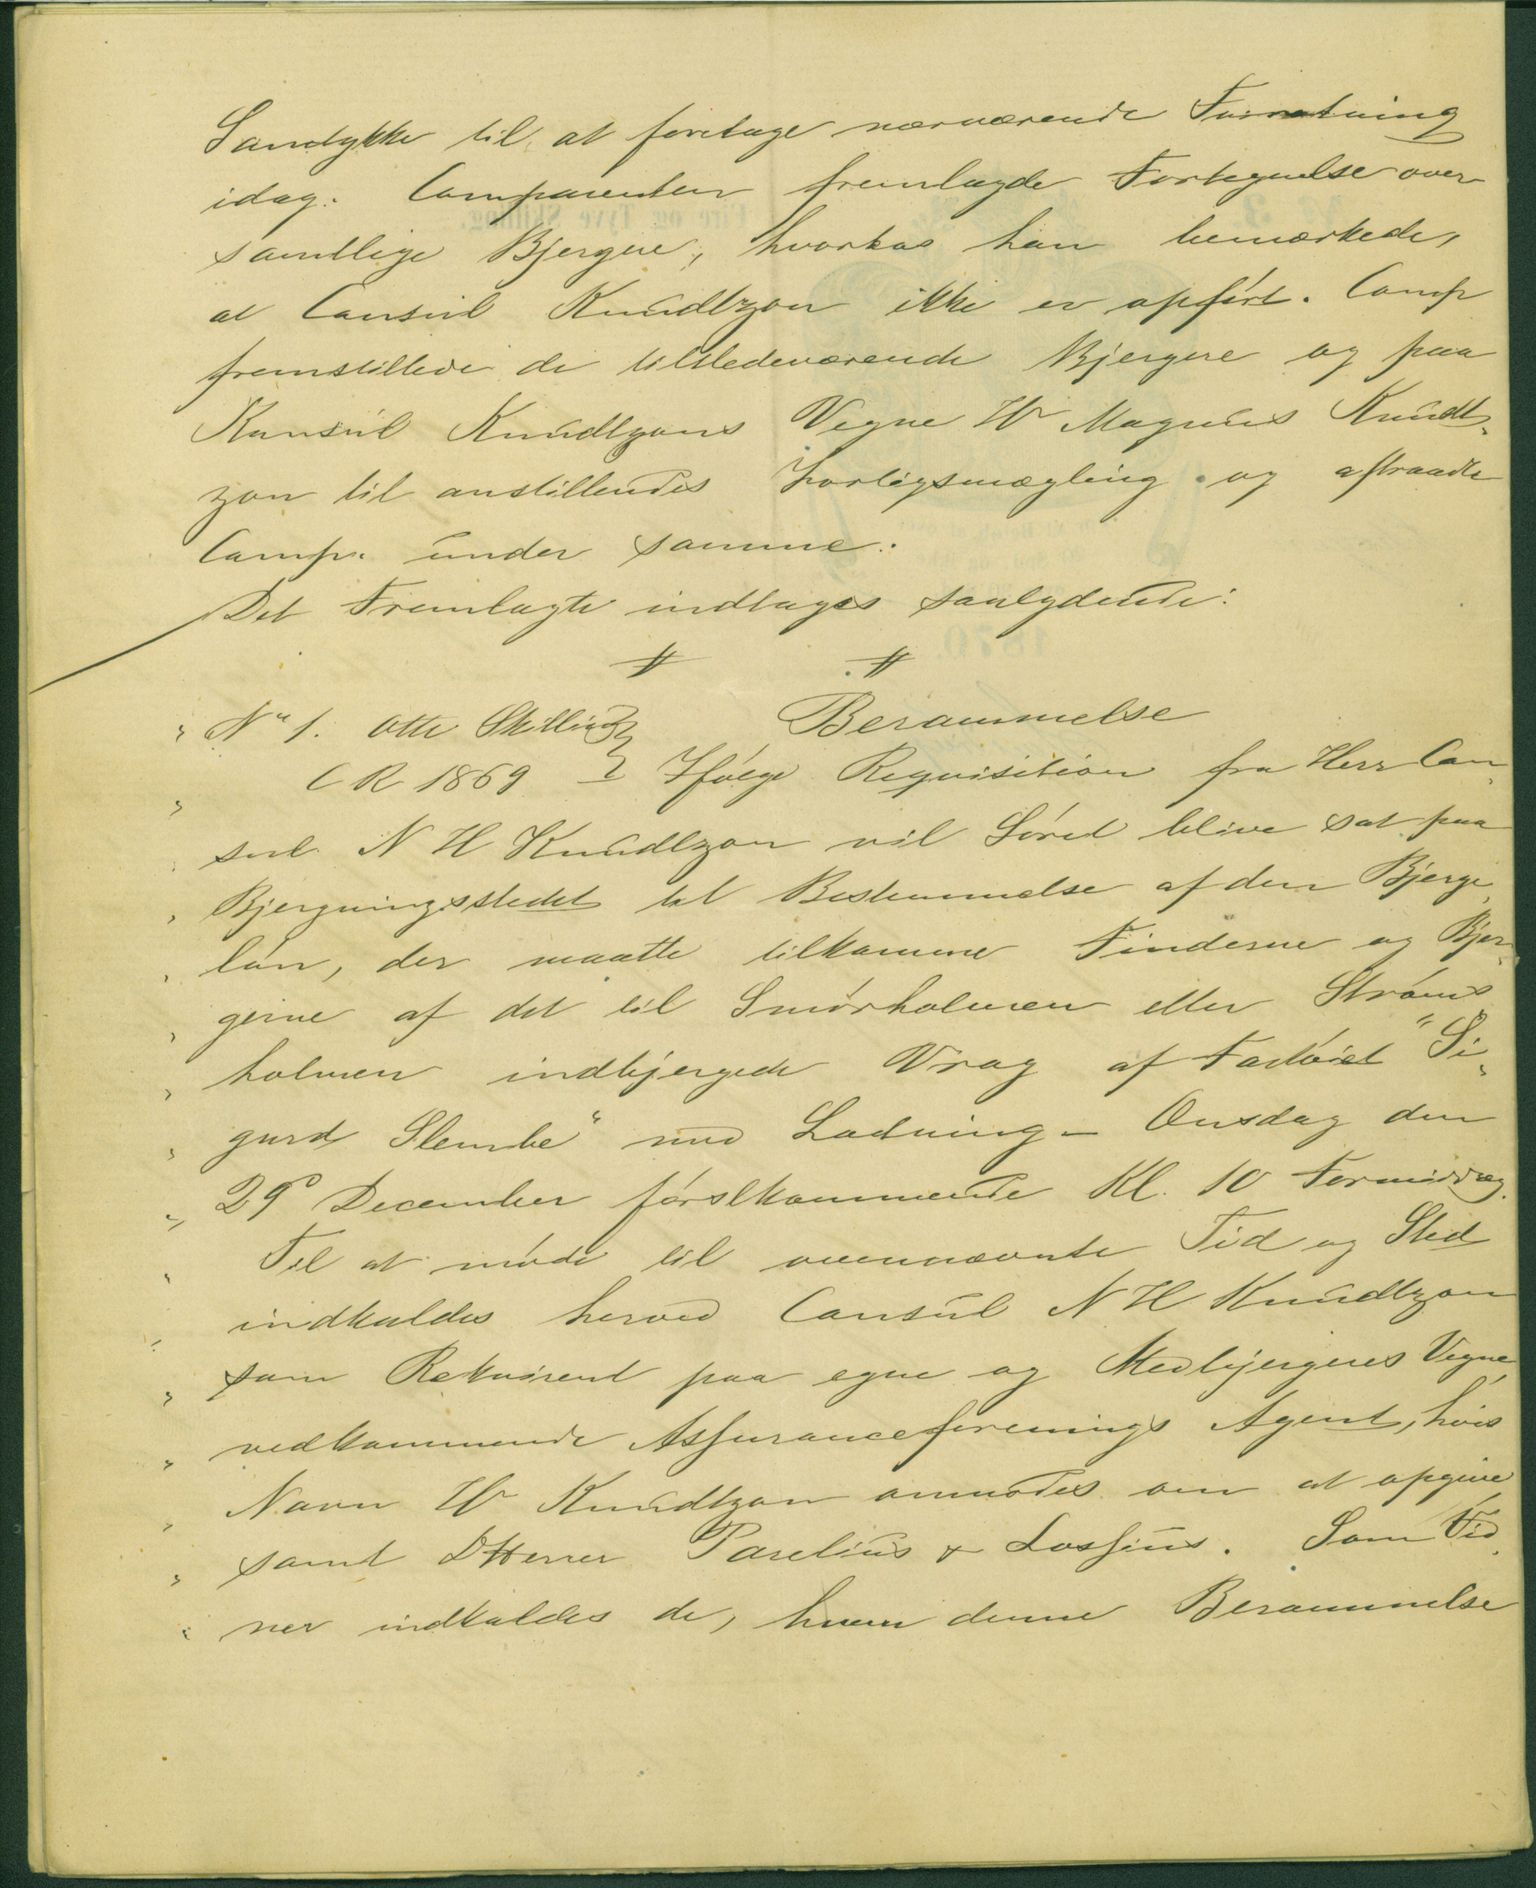 Samtykke til at foretage nærværende Forretning
idag. Comparenten fremlagde Fortegnelse over
samtlige Bjergere, hvorhos han bemærkede,
at Consul Knudtzon ikke er opført. Comp
fremstillede de tilstedeværende Bjergere og paa
Konsul Knudtzons Vegne W Magnus Knudt„
zon til anstillendes Forligsmægling og aftraadte
Comp. under samme.
Det Fremlagte indtages saalydende:
# #
„ No 1. Otte Skilling } Berammelse
„ C R 1869 } Ifølge Requisition fra Herr Con„
„ sul N H Knudtzon vil Søret blive sat paa
„ Bjergningsstedet til Bestemmelse af den Bjerge„
„ løn, der maatte tilkomme Finderne og Bjer„
„ gerne af det til Smørholmen eller Strøms
„ holmen indbjergede Vrag af Fartøiet "Si„
„ gurd Slembe" med Ladning – Onsdag den
„ 29o December førstkommende Kl. 10 Formiddag.
„ Til at møde til ovennævnte Tid og Sted
„ indkaldes herved Consul N H Knudtzon
„ som Rekvirent paa egne og Medbjergeres Vegne,
„ vedkommende Assuranceforenings Agent, hvis
„ Navn W Knudtzon anmodes om at opgive
„ samt DHerrer Parelius & Lossius. Som Vid„
„ ner indkaldes de, hvem denne Berammelse